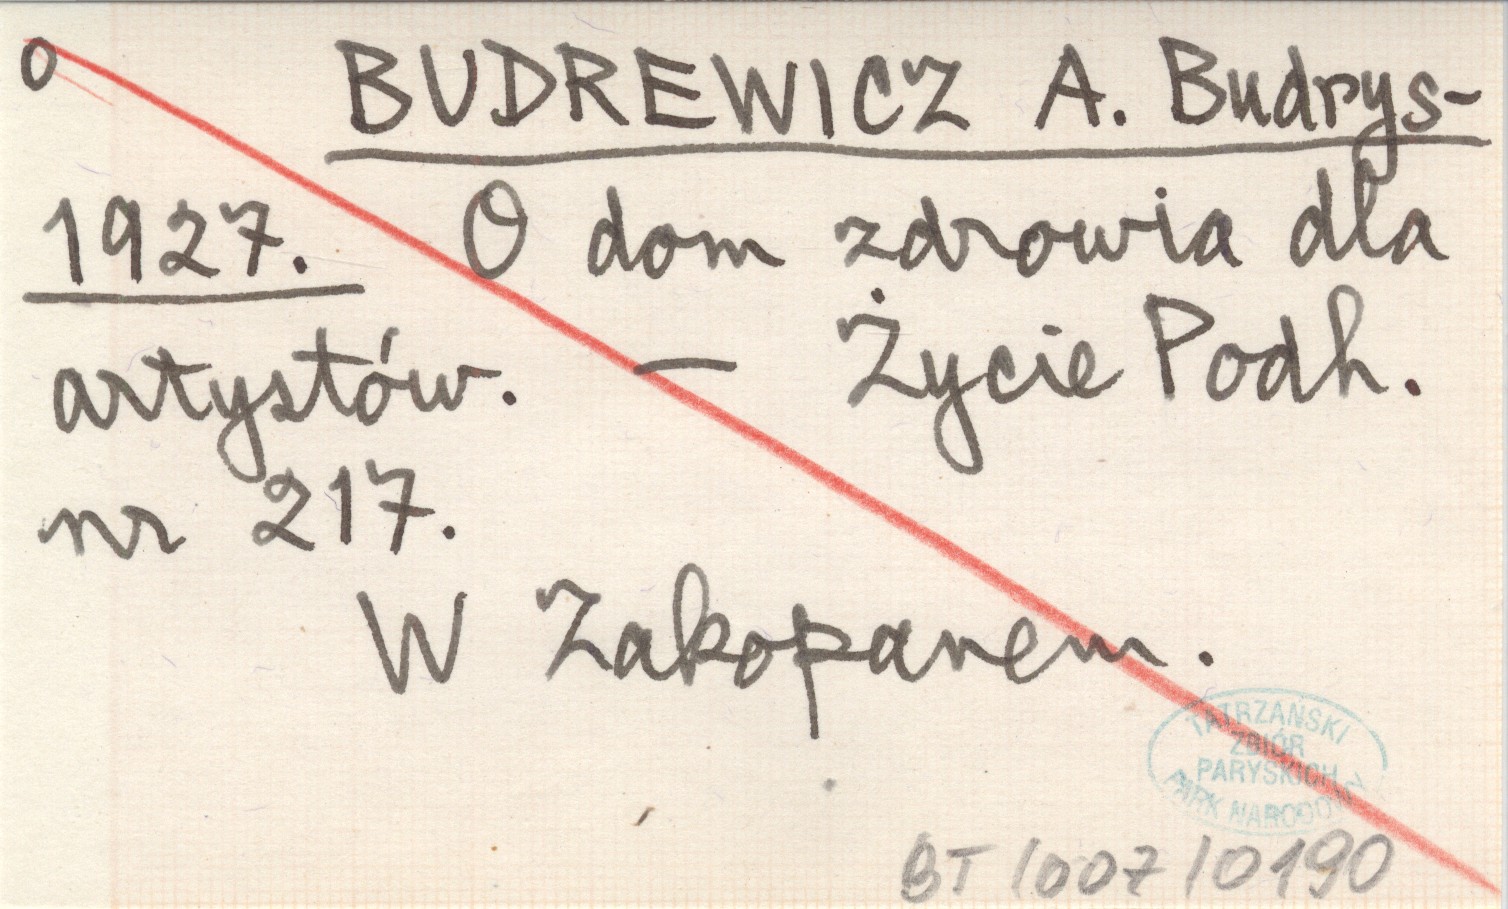 o BUDREWICZ A. Budrys-
1927. O dom zdrowia dla
artystów. — Życie Podh.
nr 217.
W Zakopanem.
TATRZAŃSKI
ZBIÓR
PARYSKICH
PARK NARODOWY
BT/007/0190